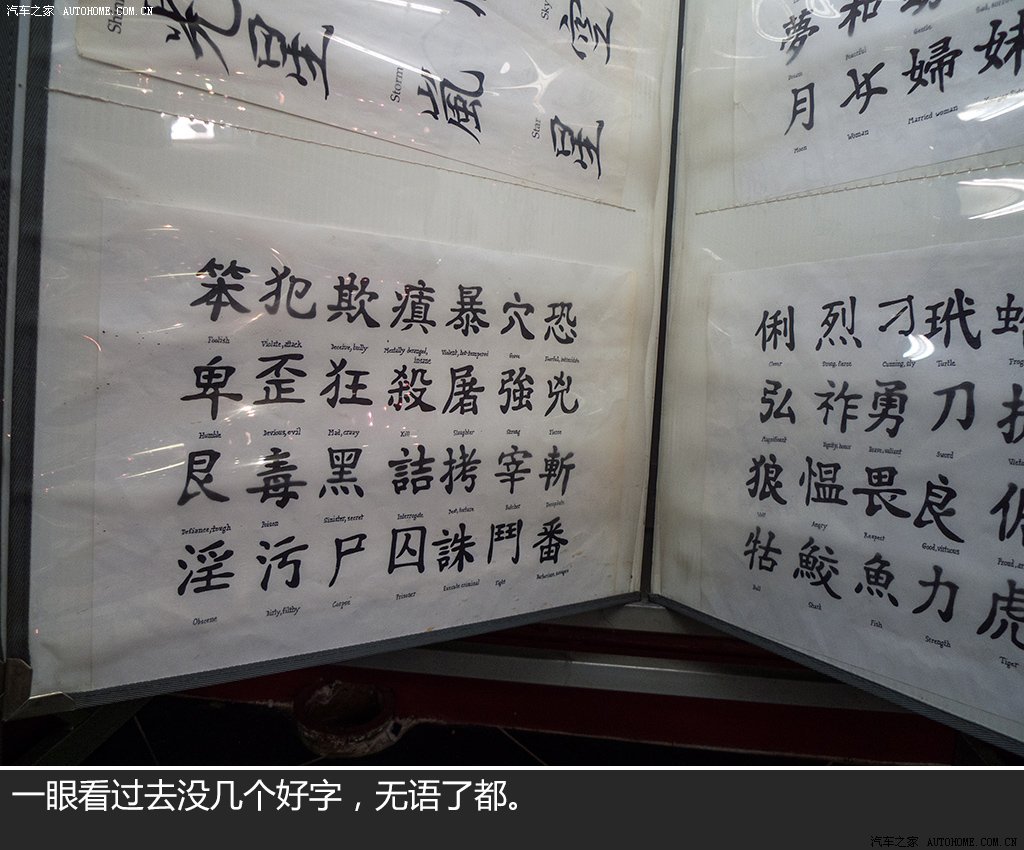 汽车之家 AUTOHOME.COM.CN
星
Storm
嵐
Star
星
夢 和
Dream Peaceful Gentle
月 女 婦 妹
Moon Woman Married woman
笨 犯 欺 瘨 暴 穴 恐
Foolish Violate, attack Deceive, bully Mentally deranged, insane Violent, hot-tempered Cave Fearful, intimidate
卑 歪 狂 殺 屠 強 兇
Humble Devious, evil Mad, crazy Kill Slaughter Strong Fierce
艮 毒 黑 詰 拷 宰 斬
Defiance, tough Poison Sinister, secret Interrogate Beat, torture Butcher Decapitate
淫 污 尸 囚 誅 鬥 番
Obscene Dirty, filthy Corpse Prisoner Execute criminal Fight Barbarian, savages
俐 烈 刁 玳
Clever Strong, fierce Cunning, sly Turtle Frog
弘 祚 勇 刀
Magnificent Dignity, honor Brave, valiant Sword
狼 愠 畏 良
Wolf Angry Respect Good, virtuous
牯 鮫 魚 力 虎
Bull Shark Fish Strength Tiger
一眼看过去没几个好字，无语了都。
汽车之家 AUTOHOME.COM.CN